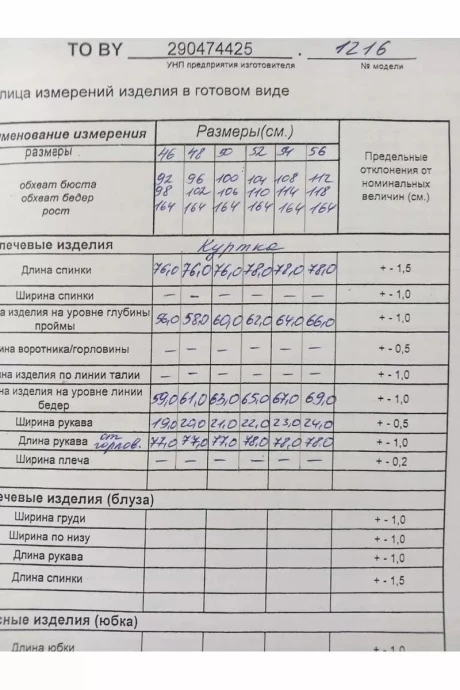 TO BY 290474425 . 1216
УНП предприятия изготовителя № модели
лица измерений изделия в готовом виде
именование измерения Размеры(см.) Предельные отклонения от номинальных величин (см.)
размеры 46 48 50 52 54 56
обхват бюста 92 96 100 104 108 112
обхват бедер 98 102 106 110 114 118
рост 164 164 164 164 164 164
лечевые изделия Куртка
Длина спинки 76,0 76,0 76,0 78,0 78,0 78,0 + - 1,5
Ширина спинки – – – – – – + - 1,0
а изделия на уровне глубины проймы 56,0 58,0 60,0 62,0 64,0 66,0 + - 1,0
ина воротника/горловины – – – – – – + - 0,5
ина изделия по линии талии – – – – – – + - 1,0
на изделия на уровне линии бедер 59,0 61,0 63,0 65,0 67,0 69,0 + - 1,0
Ширина рукава 19,0 20,0 21,0 22,0 23,0 24,0 + - 0,5
Длина рукава от горлов. 77,0 77,0 77,0 78,0 78,0 78,0 + - 1,0
Ширина плеча – – – – – – + - 0,2
ечевые изделия (блуза)
Ширина груди + - 1,0
Ширина по низу + - 1,0
Длина рукава + - 1,0
Длина спинки + - 1,5
сные изделия (юбка)
Длина юбки + - 1,0